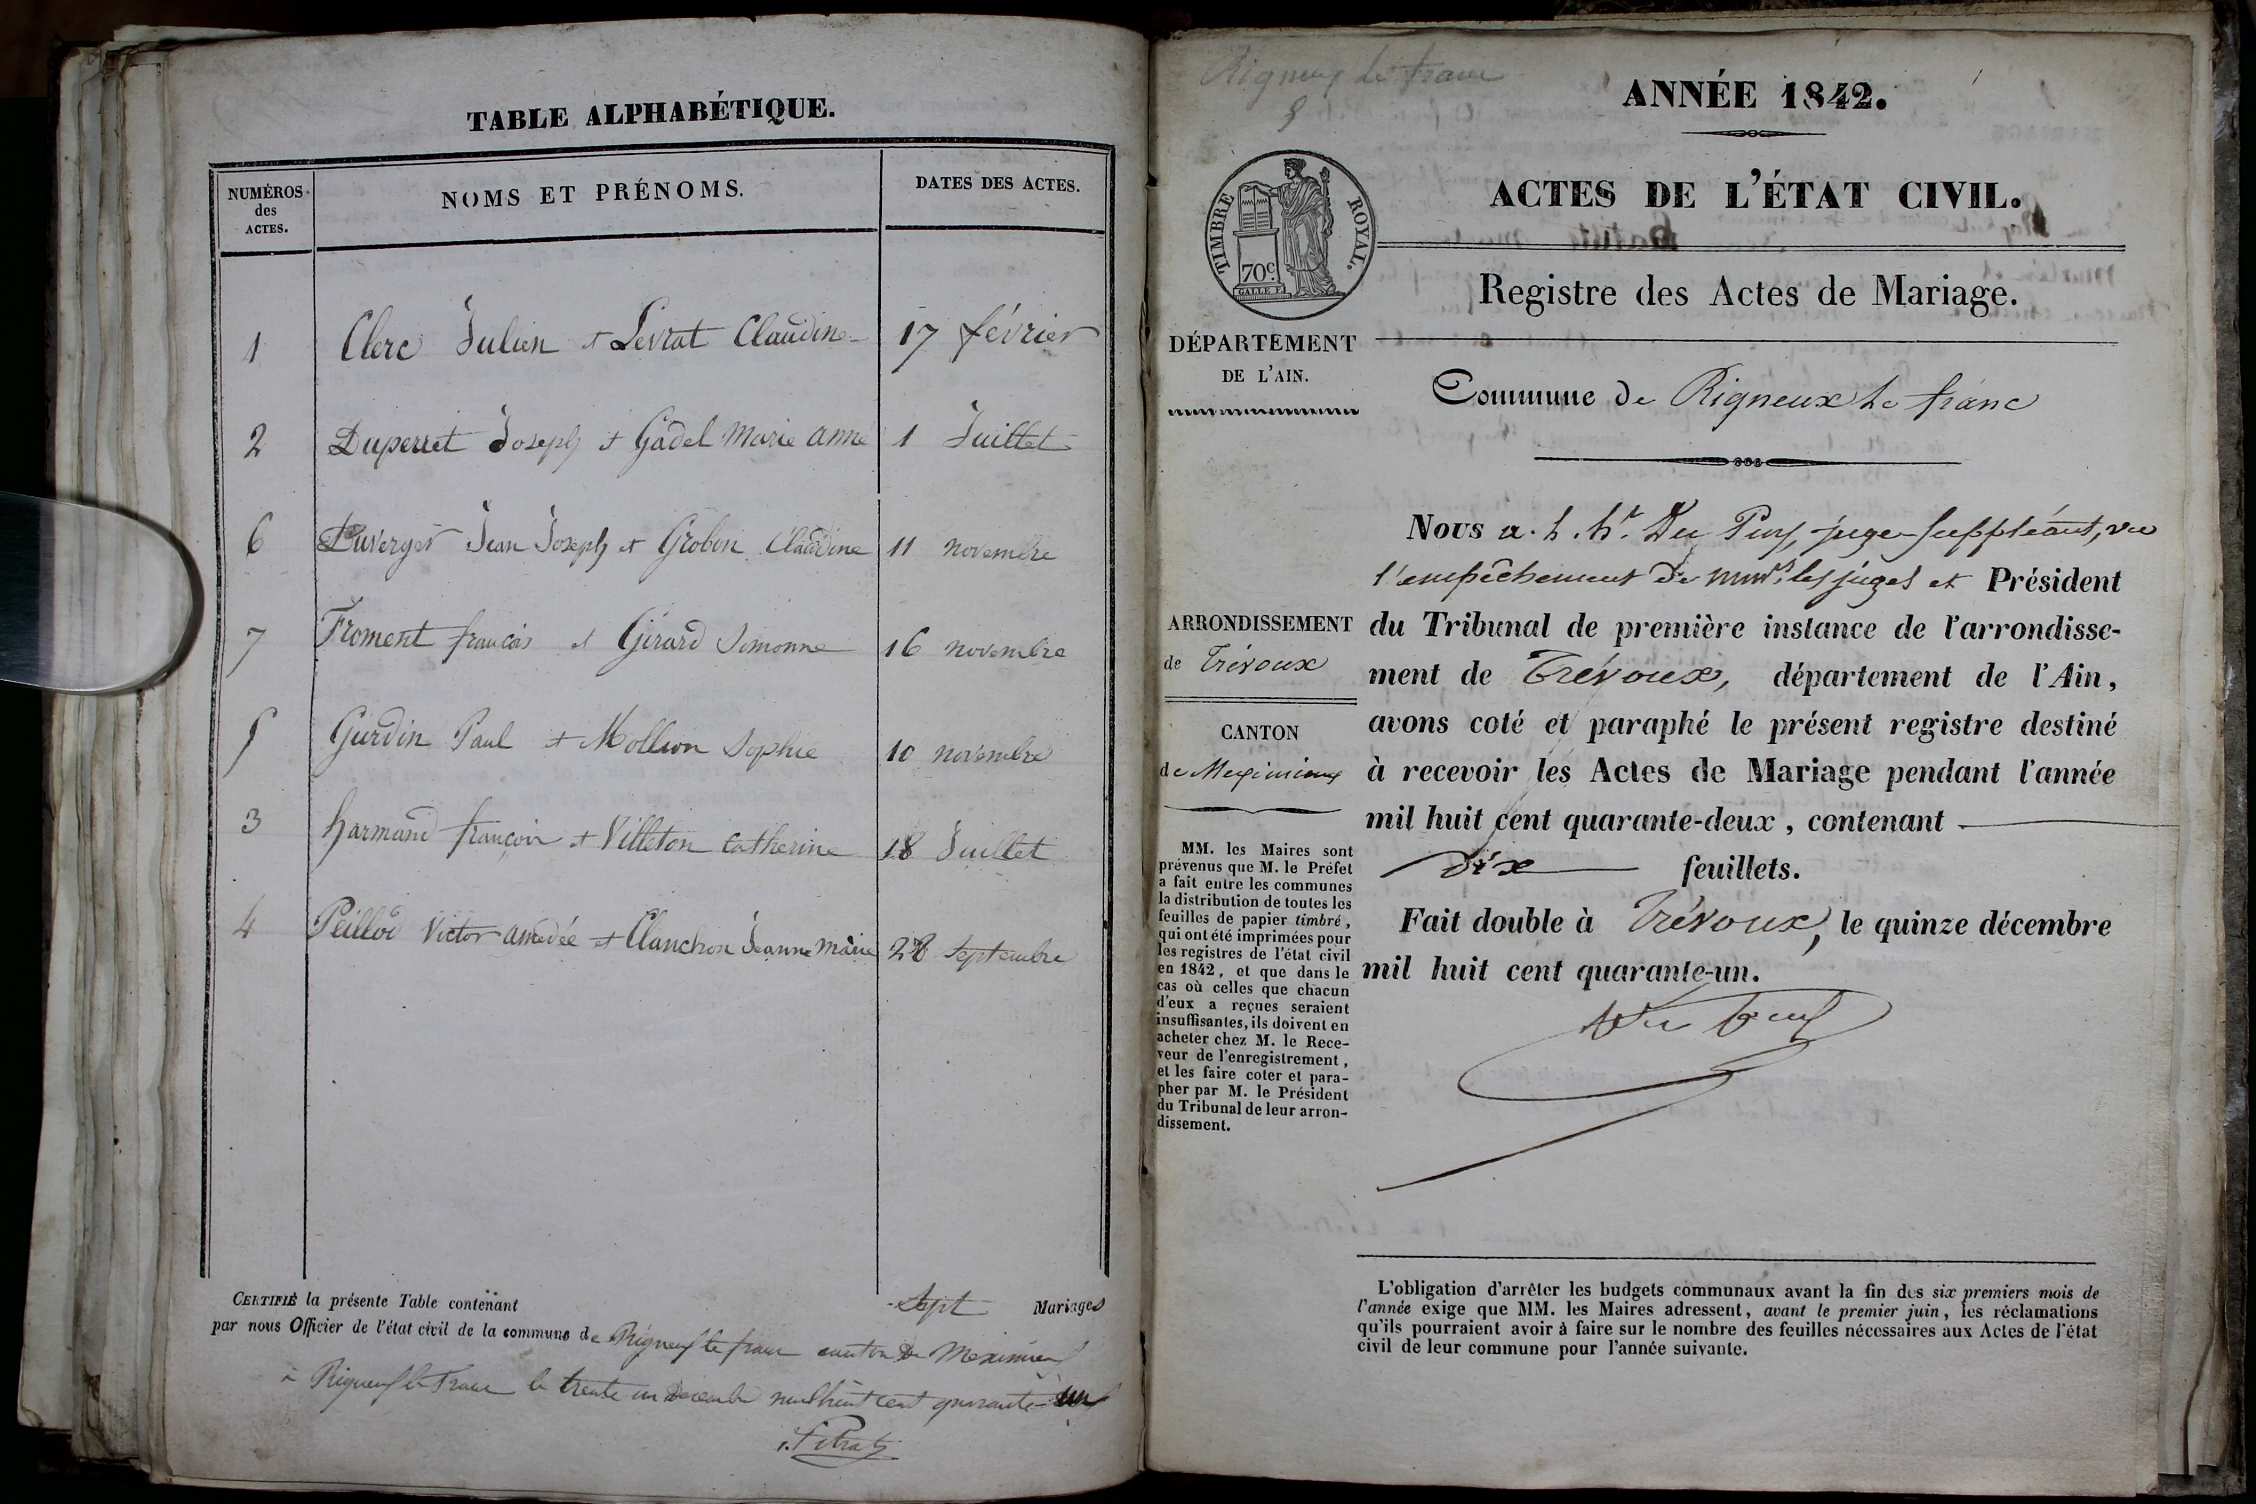 TABLE ALPHABÉTIQUE.
NUMÉROS des ACTES. NOMS ET PRÉNOMS. DATES DES ACTES.
1 Clerc Julien et Levrat Claudine 17 février
2 Duperret Joseph et Gadel Marie anne 1 Juillet
6 Duverger Jean Joseph et Grobon Claudine 11 novembre
7 Froment françois et Girard Simonne 16 novembre
5 Gurdin Paul et Mollion Sophie 10 novembre
3 harmand françois et Villeton Catherine 18 Juillet
4 Peillod Victor amedée et Clanchon Jeanne Marie 28 Septembre
CERTIFIÉ la présente Table contenant Sept Mariages
par nous Officier de l'état civil de la commune de Rigneux le franc canton de Meximieux
à Rigneux le Franc le trente un decembre mil huit cent quarante un
Rigneux le franc
ANNÉE 1842.
ACTES DE L'ÉTAT CIVIL.
TIMBRE ROYAL.
70c.
GALLE F.
Registre des Actes de Mariage.
DÉPARTEMENT
DE L'AIN.
Commune de Rigneux le franc
Nous a. h. hr. Du Puy, juge Suppléant, vu
l'empêchement de mmrs. les juges et Président
du Tribunal de première instance de l'arrondisse-
ment de Trévoux, département de l'Ain,
avons coté et paraphé le présent registre destiné
à recevoir les Actes de Mariage pendant l'année
mil huit cent quarante-deux, contenant
dix feuillets.
Fait double à Trévoux, le quinze décembre
mil huit cent quarante-un.
ARRONDISSEMENT
de Trévoux
CANTON
de Meximieux
MM. les Maires sont
prévenus que M. le Préfet
a fait entre les communes
la distribution de toutes les
feuilles de papier timbré,
qui ont été imprimées pour
les registres de l'état civil
en 1842, et que dans le
cas où celles que chacun
d'eux a reçues seraient
insuffisantes, ils doivent en
acheter chez M. le Rece-
veur de l'enregistrement,
et les faire coter et para-
pher par M. le Président
du Tribunal de leur arron-
dissement.
L'obligation d'arrêter les budgets communaux avant la fin des six premiers mois de
l'année exige que MM. les Maires adressent, avant le premier juin, les réclamations
qu'ils pourraient avoir à faire sur le nombre des feuilles nécessaires aux Actes de l'état
civil de leur commune pour l'année suivante.